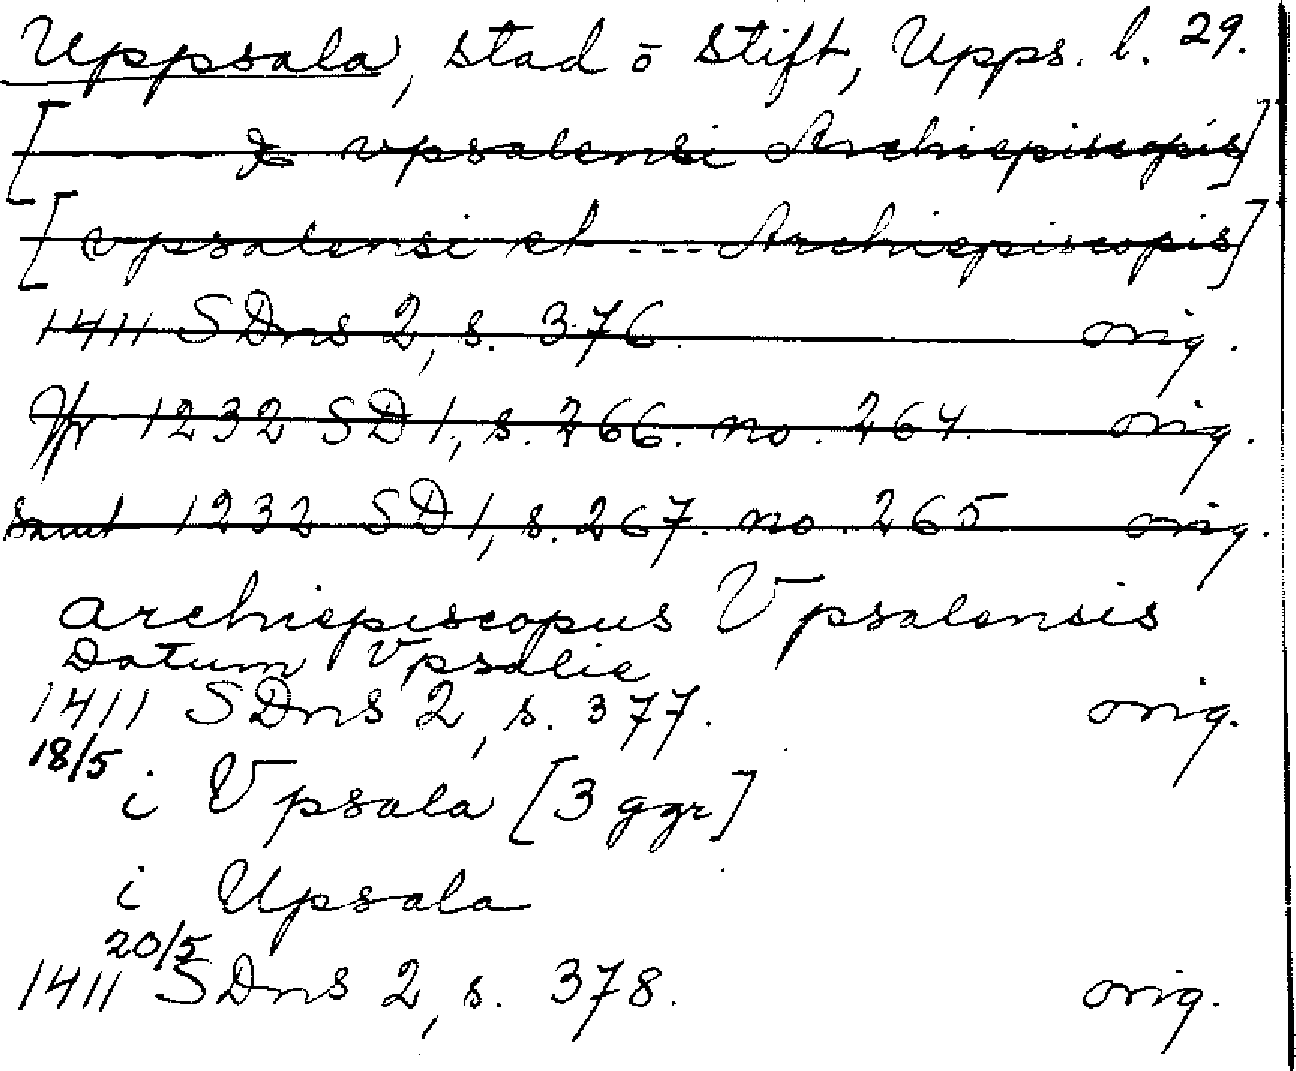 Uppsala, stad o stift, Upps. l. 29.
[—— & vpsalensi Archiepiscopis]
[vpsalensi et --- Archiepiscopis]
1411 SDns 2, s. 376. orig.
Jfr 1232 SD 1, s. 266. no. 264. orig.
Samt 1232 SD 1, s. 267. no. 265 orig.
archiepiscopus Vpsalensis
Datum Vpsalie
1411 SDns 2, s. 377. orig.
18/5
i Vpsala [3 ggr]
i Upsala
20/5
1411 SDns 2, s. 378. orig.